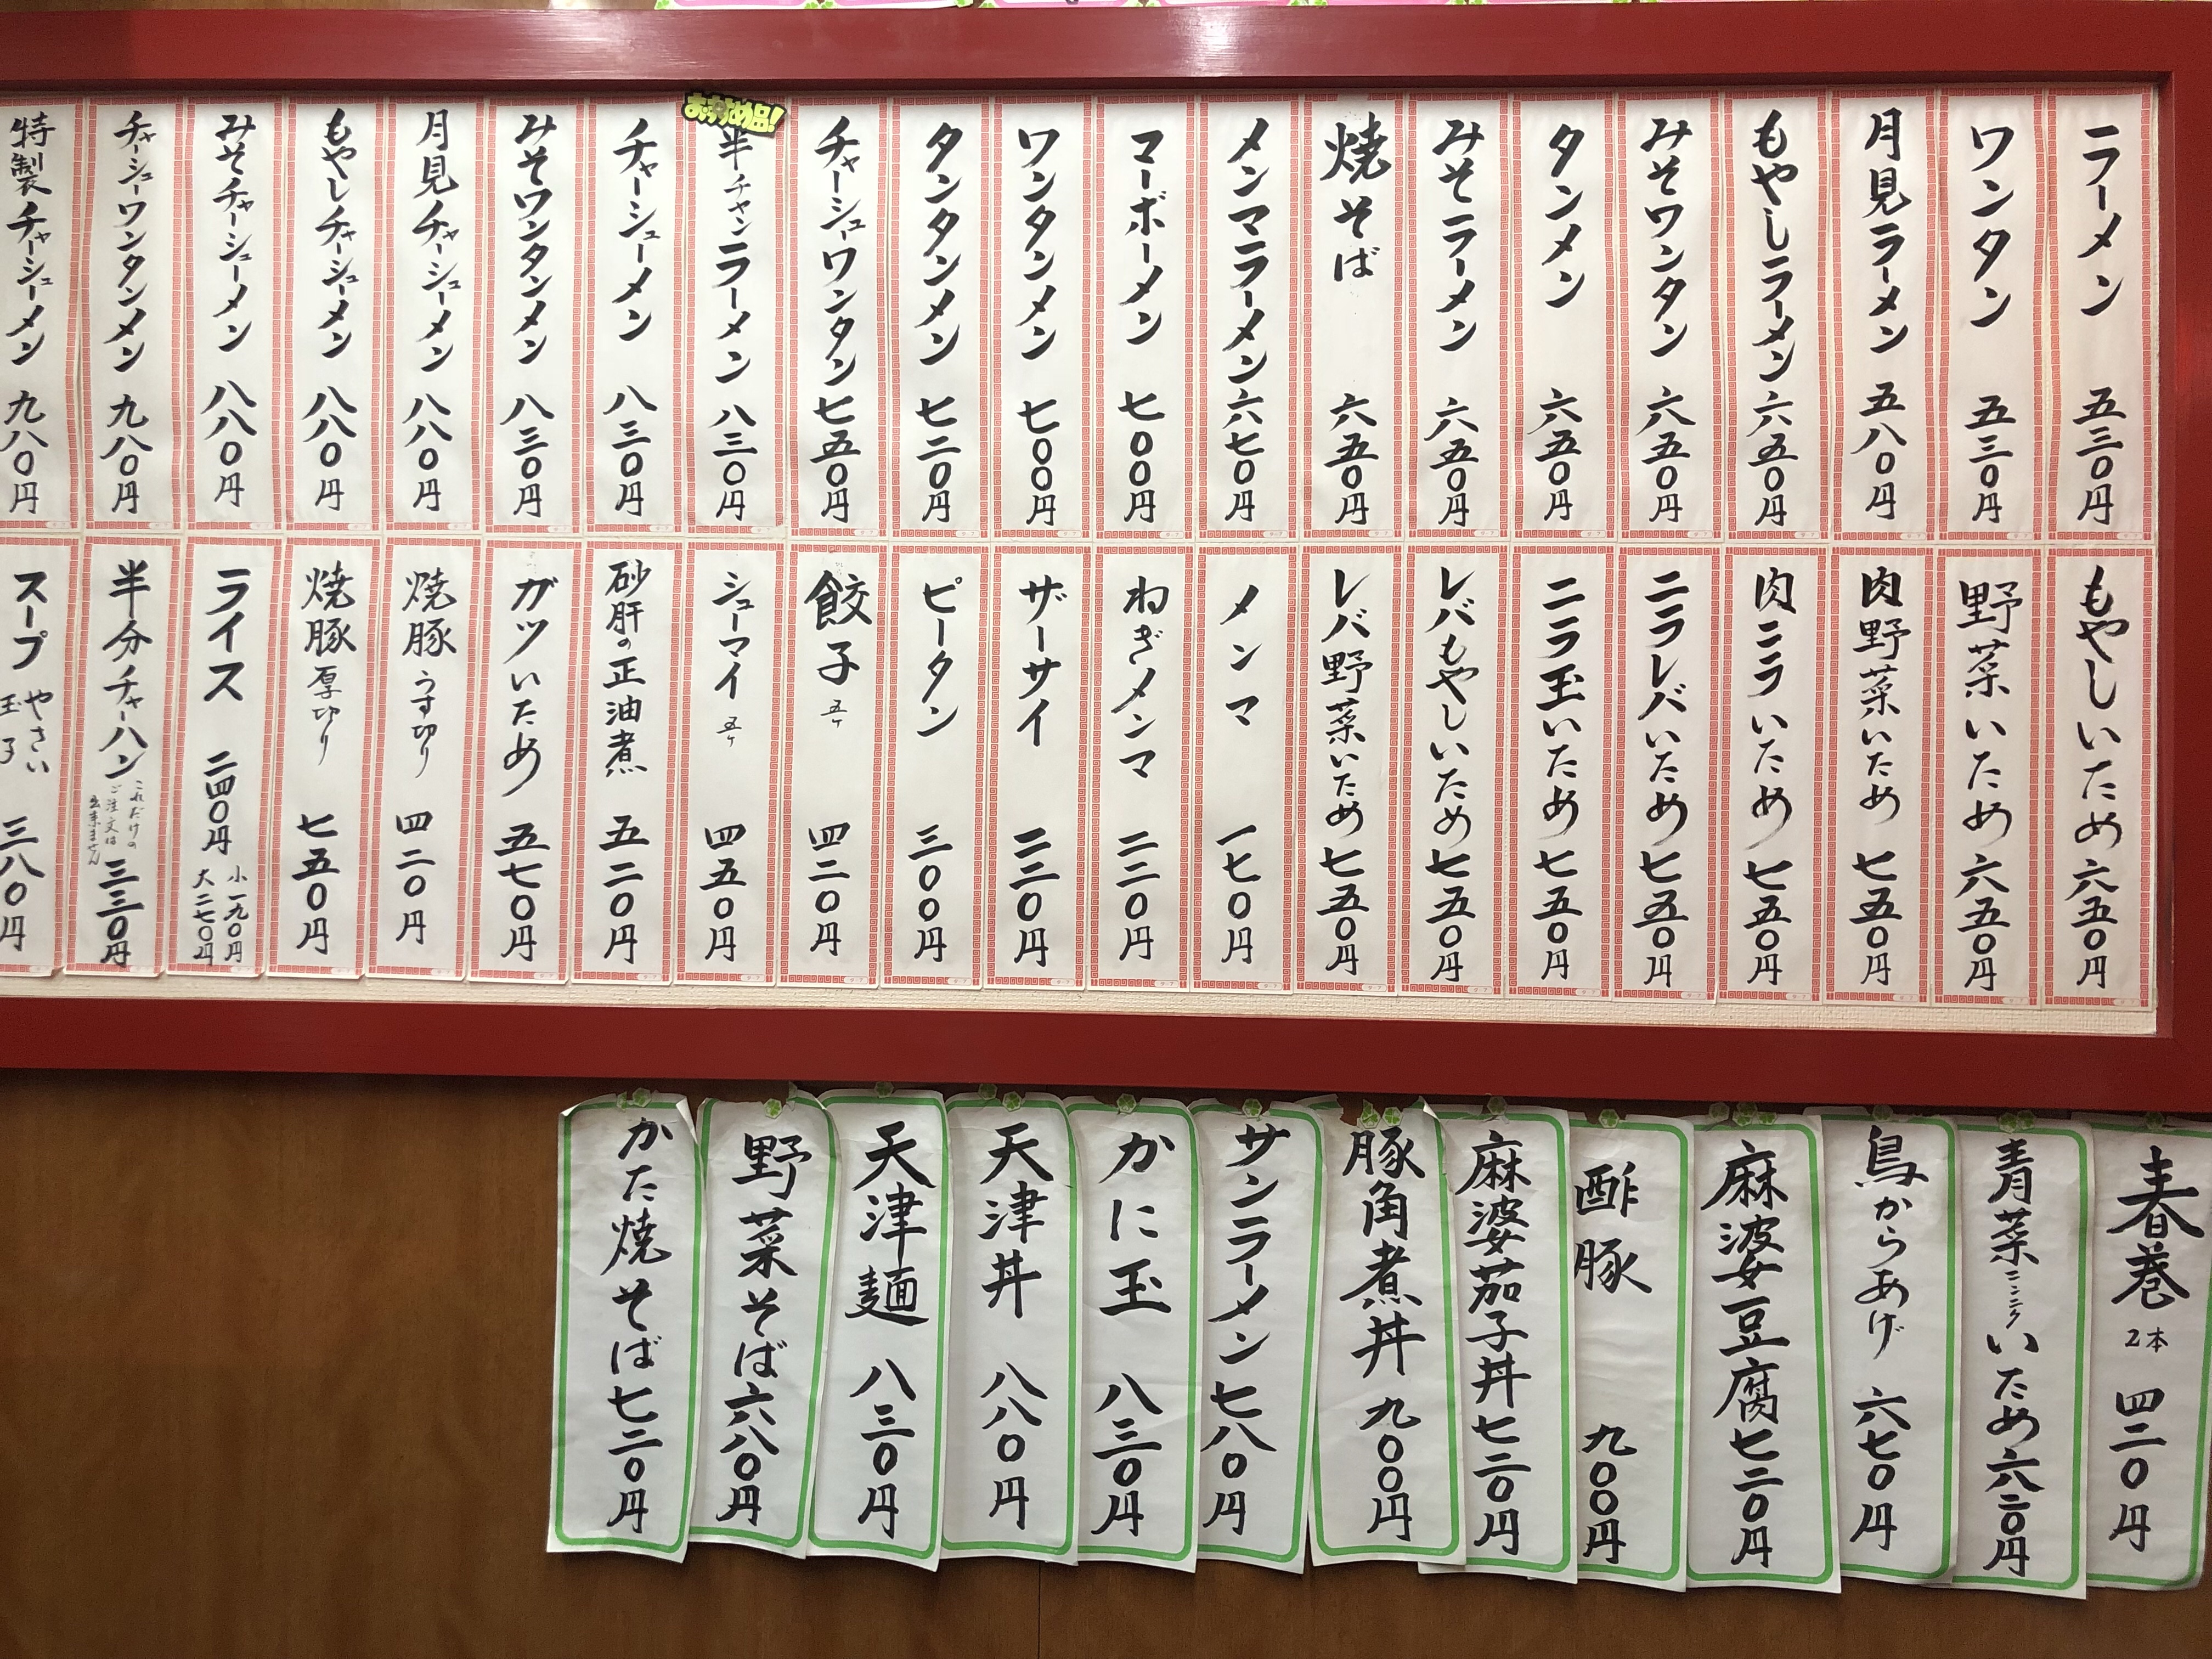 ラーメン 五三〇円
ワンタン 五三〇円
月見ラーメン 五八〇円
もやしラーメン 六五〇円
みそワンタン 六五〇円
タンメン 六五〇円
みそラーメン 六五〇円
焼そば 六五〇円
メンマラーメン 六七〇円
マーボーメン 七〇〇円
ワンタンメン 七〇〇円
タンタンメン 七二〇円
チャーシュウワンタン 七五〇円
おすすめ品!
半チャンラーメン 八三〇円
チャーシューメン 八三〇円
みそワンタンメン 八三〇円
月見チャーシューメン 八八〇円
もやしチャーシューメン 八八〇円
みそチャーシューメン 八八〇円
チャーシューワンタンメン 九八〇円
特製チャーシューメン 九八〇円
もやしいため 六五〇円
野菜いため 六五〇円
肉野菜いため 七五〇円
肉ニラいため 七五〇円
ニラレバいため 七五〇円
ニラ玉いため 七五〇円
レバもやしいため 七五〇円
レバ野菜いため 七五〇円
メンマ 一七〇円
ねぎメンマ 二二〇円
ザーサイ 二二〇円
ピータン 三〇〇円
餃子 五ヶ 四二〇円
シューマイ 五ケ 四五〇円
砂肝の正油煮 五二〇円
ガツいため 五七〇円
焼豚 うす切り 四二〇円
焼豚 厚切り 七五〇円
ライス 二四〇円 小 一九〇円 大 二七〇円
半分チャーハン これだけのご注文は出来ません 三三〇円
スープ やさい 玉子 三八〇円
春巻 2本 四二〇円
青菜ニンニクいため 六二〇円
鳥からあげ 六七〇円
麻婆豆腐 七二〇円
酢豚 九〇〇円
麻婆茄子丼 七二〇円
豚角煮丼 九〇〇円
サンラーメン 七八〇円
かに玉 八三〇円
天津丼 八八〇円
天津麺 八三〇円
野菜そば 六八〇円
かた焼そば 七二〇円